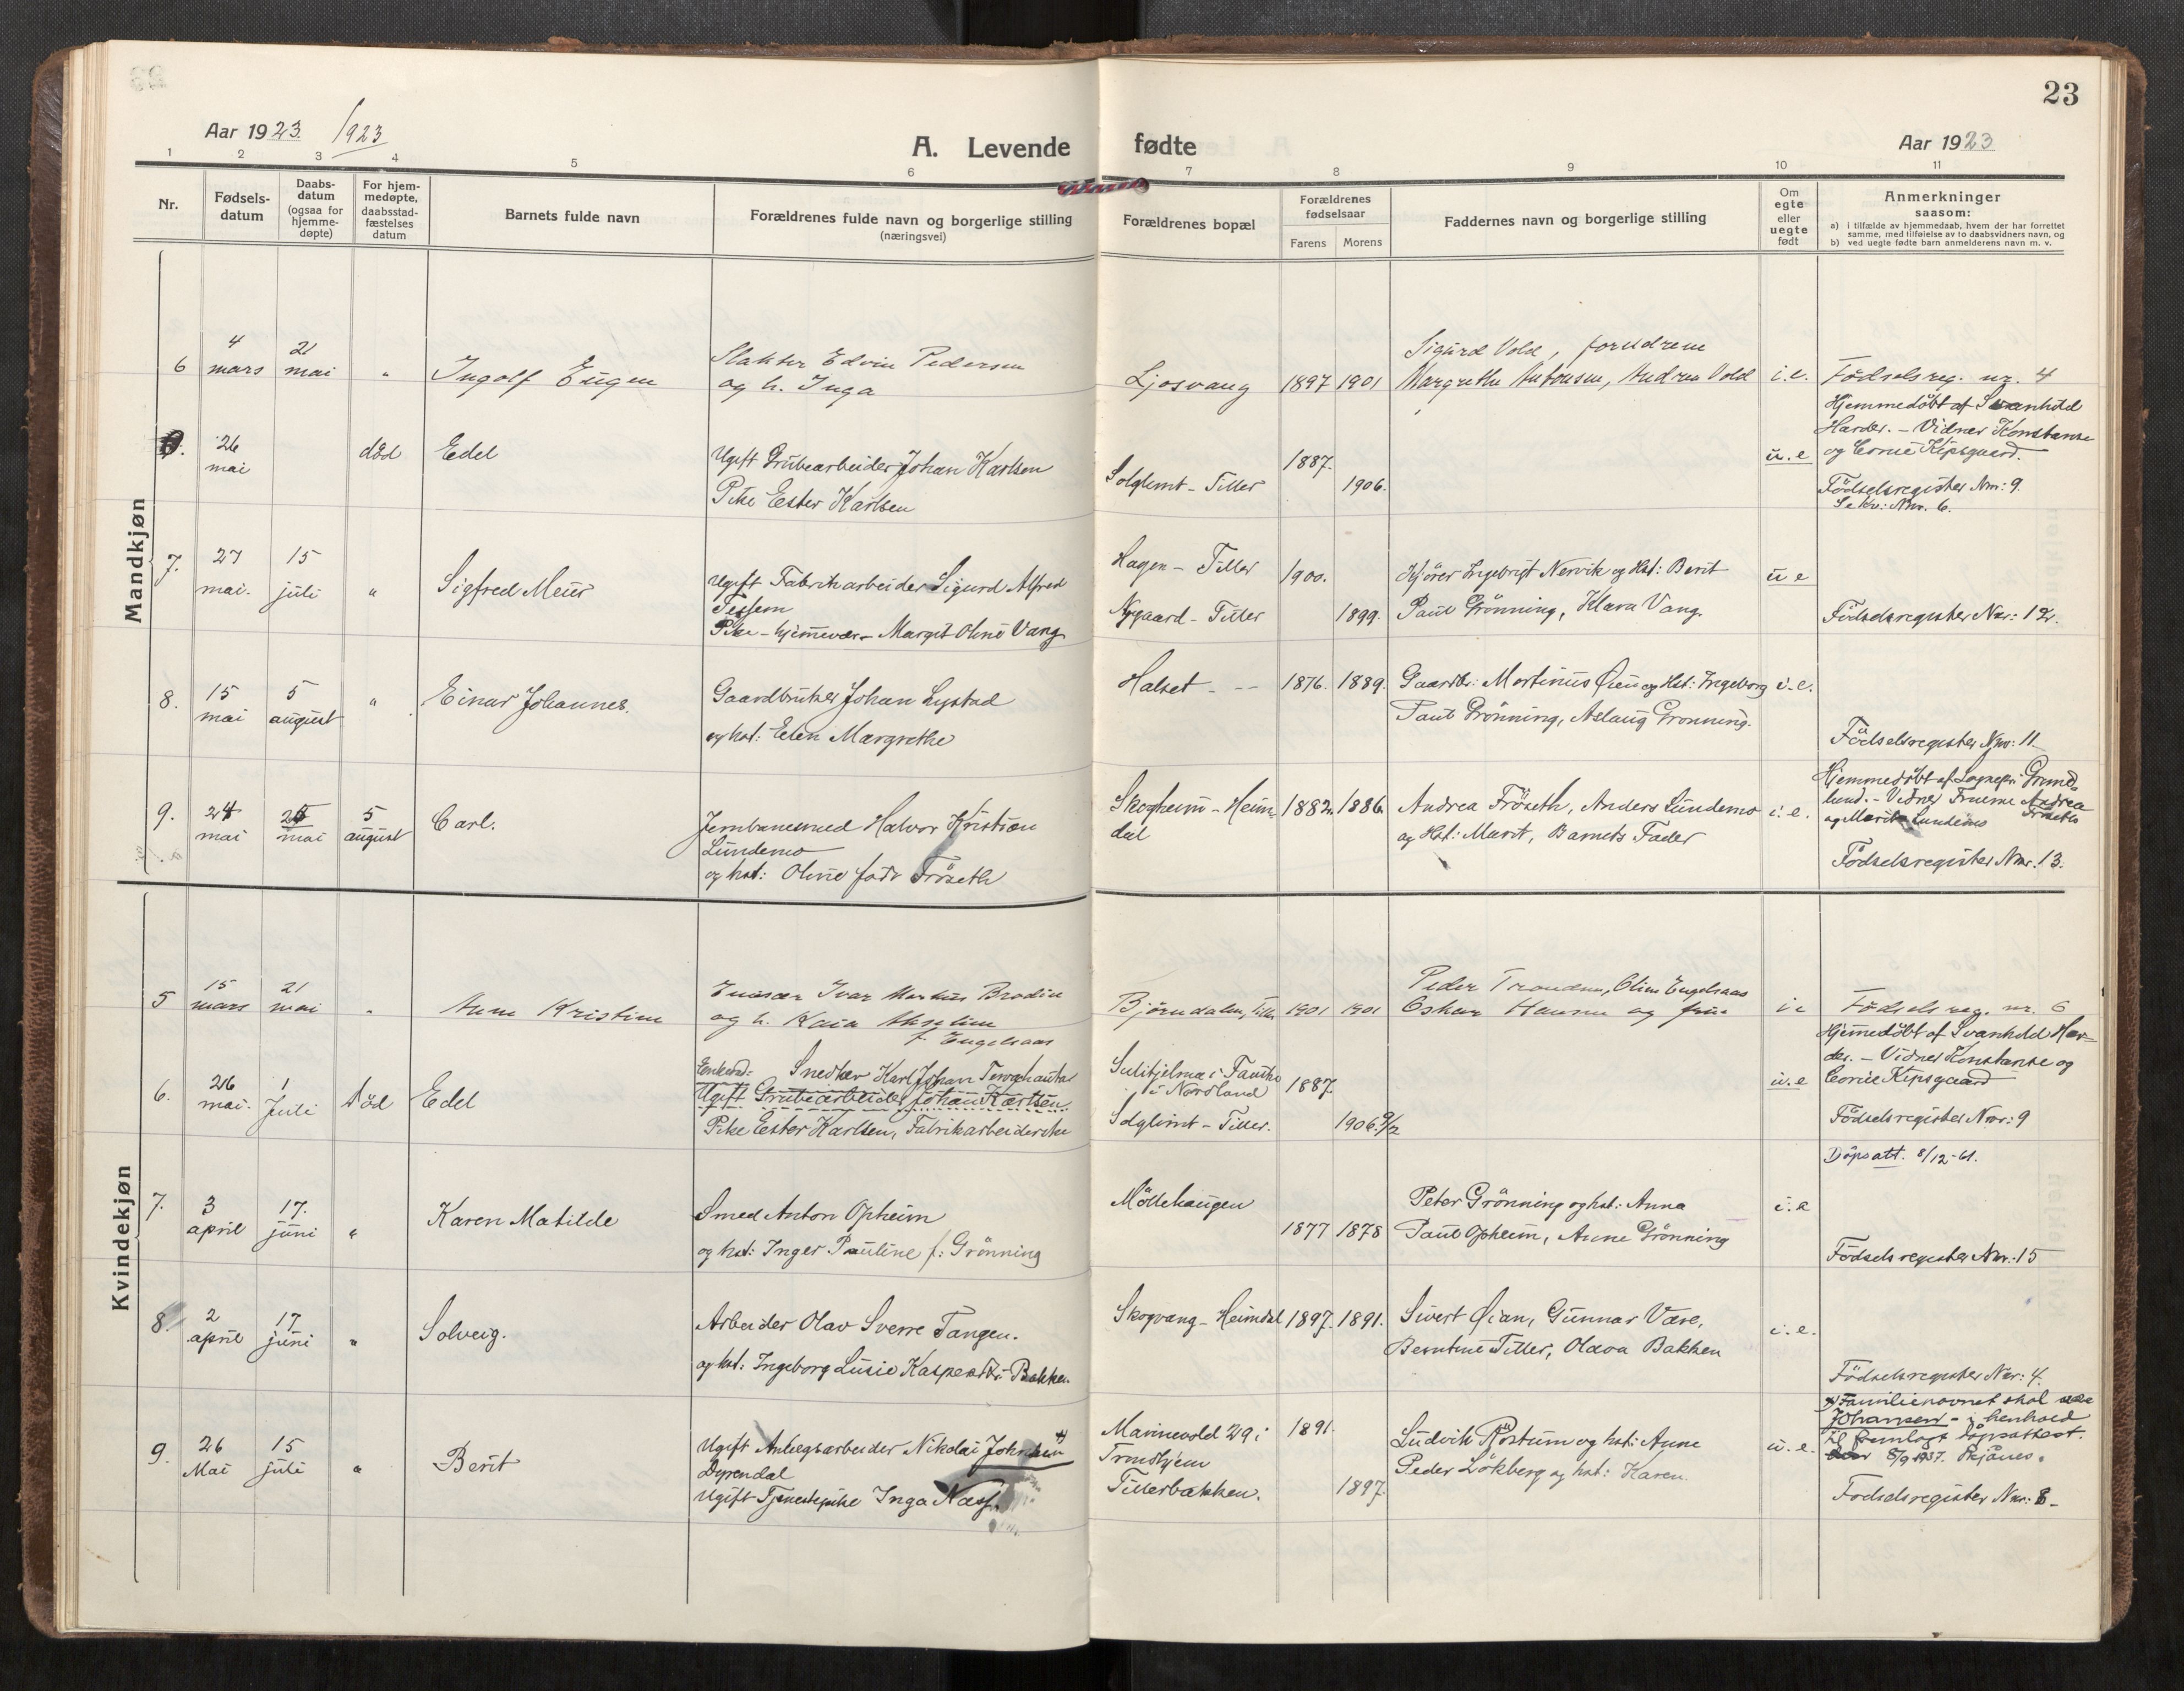 23
Aar 1923. 1923
A. Levende fødte
Aar 1923
1 2 3 4 5 6 7 8 9 10 11
Nr.
Fødsels-
datum
Daabs-
datum
(ogsaa for
hjemme-
døpte)
For hjem-
medøpte,
daabsstad-
fæstelses
datum
Barnets fulde navn
Forældrenes fulde navn og borgerlige stilling
(næringsvei)
Forældrenes bopæl
Forældrenes
fødselsaar
Farens Morens
Faddernes navn og borgerlige stilling
Om
egte
eller
uegte
født
Anmerkninger
saasom:
a) i tilfælde av hjemmedaab, hvem der har forrettet
samme, med tilføielse av to daabsvidners navn, og
b) ved uegte fødte barn anmelderens navn m. v.
Mandkjøn
6 4 mars 21 mai " Ingolf Eugen
Slakter Edvin Pedersen
og h. Inga
Ljosvang 1897 1901
Sigurd Vold, foreldrene
Margrethe Antonsen, Andrea Vold
i.e. Fødselsreg. nr. 4
26 mai død Edel
Ugift Grubearbeider Johan Karlsen
Pike Ester Karlsen
Solglimt - Tiller
1887.
1906.
u.e
Hjemmedøbt af Svanhild
Harder. - Vidner Konstanse
og Corne Kipsgaard.
Fødselsregister Nmr: 9.
Se kv: Nmr. 6.
7. 27 mai. 15 juli " Sigfred Meier
Ugift Fabrikarbeider Sigurd Alfred
Tessem
Pike - hjemmevær - Margit Oline Vang
Hagen - Tiller 1900.
Nygaard - Tiller 1899.
Kjører Ingebrigt Nervik og Hst: Berit
Paul Grønning, Klara Vang.
u e
Fødselsregister Nmr: 12.
8. 15 mai 5 august " Einar Johannes.
Gaardbruker Johan Lystad
og hst: Elen Margrethe
Halset - -- 1876. 1889.
Gaardbr: Martinus Øien og Hst: Ingeborg
Paul Grønning, Aslaug Grønning.
i.e.
Fødselsregister Nmr: 11
9. 24 mai 25 mai 5 august Carl.
Jernbanesmed Halvor Kristian
Lundemo
og hst: Oline født Frøseth
Skogheim - Heim-
dal
1882. 1886
Andrea Frøseth, Anders Lundemo
og Hst: Marit, Barnets Fader
i.e.
Hjemmedøbt af Sognepr: Grund-
lund. - Vidner Fruerne Andrea
Frøseth
og Marit Lundemo
Fødselsregister Nmr. 13.
Kvindekjøn
5 15 mars 21 mai " Anne Kristine
Ivar Markus Brodin
og h. Kaia
f. Engelsaas
Bjørndalen, Tiller 1901 1901
Peder Trondsen, Oline Engelsaas
Oskar Hansen og frue
i e Fødselsreg. nr. 6
6. 26 mai. 1 Juli Død Edel
Enkesd: Snedker Karl Johan
Ugift Grubearbeider Johan Karlsen
Pike Ester Karlsen, Fabrikarbeiderske
Sulitjelma i Fauske
i Nordland
Solglimt - Tiller.
1887.
1906. 9/2
u.e
Hjemmedøbt af Svanhild Har-
der. - Vidner Konstanse og
Corne Kipsgaard
Fødselsregister Nmr: 9
Døpsatt. 8/12-61.
7. 3 april 17. juni " Karen Matilde
Smed Anton Opheim
og hst: Inger Pauline f: Grønning
Møllehaugen
1877 1878
Peter Grønning og hst: Anna
Paul Opheim, Anne Grønning
i.e
Fødselsregister Nmr: 15
8. 2 april 17. juni " Solveig.
Arbeider Olav Sverre Tangen.
og hst: Ingeborg Lusie Kaspersdtr: Bakken.
Skogvang - Heimdal 1897. 1891.
Sivert Øian, Gunnar Være,
Berntine Tiller, Olava Bakken
i.e.
Fødselsregister Nmr: 4.
9. 26 Mai 15 juli " Berit
Ugift Anlegsarbeider Nikolai Johnsen x)
Dyrendal
Ugift Tjenestepike Inga Næss.
29 i
Trondhjem
Tillerbakken.
1891.
1897.
Ludvik Røstum og hst: Anne
Peder Løkberg og hst: Karen
u.e.
x) Familienavnet skal være
Johansen - i henhold
til fremlagt døpsattest.
8/9 1937. Skjånes.
Fødselsregister Nmr: 8-